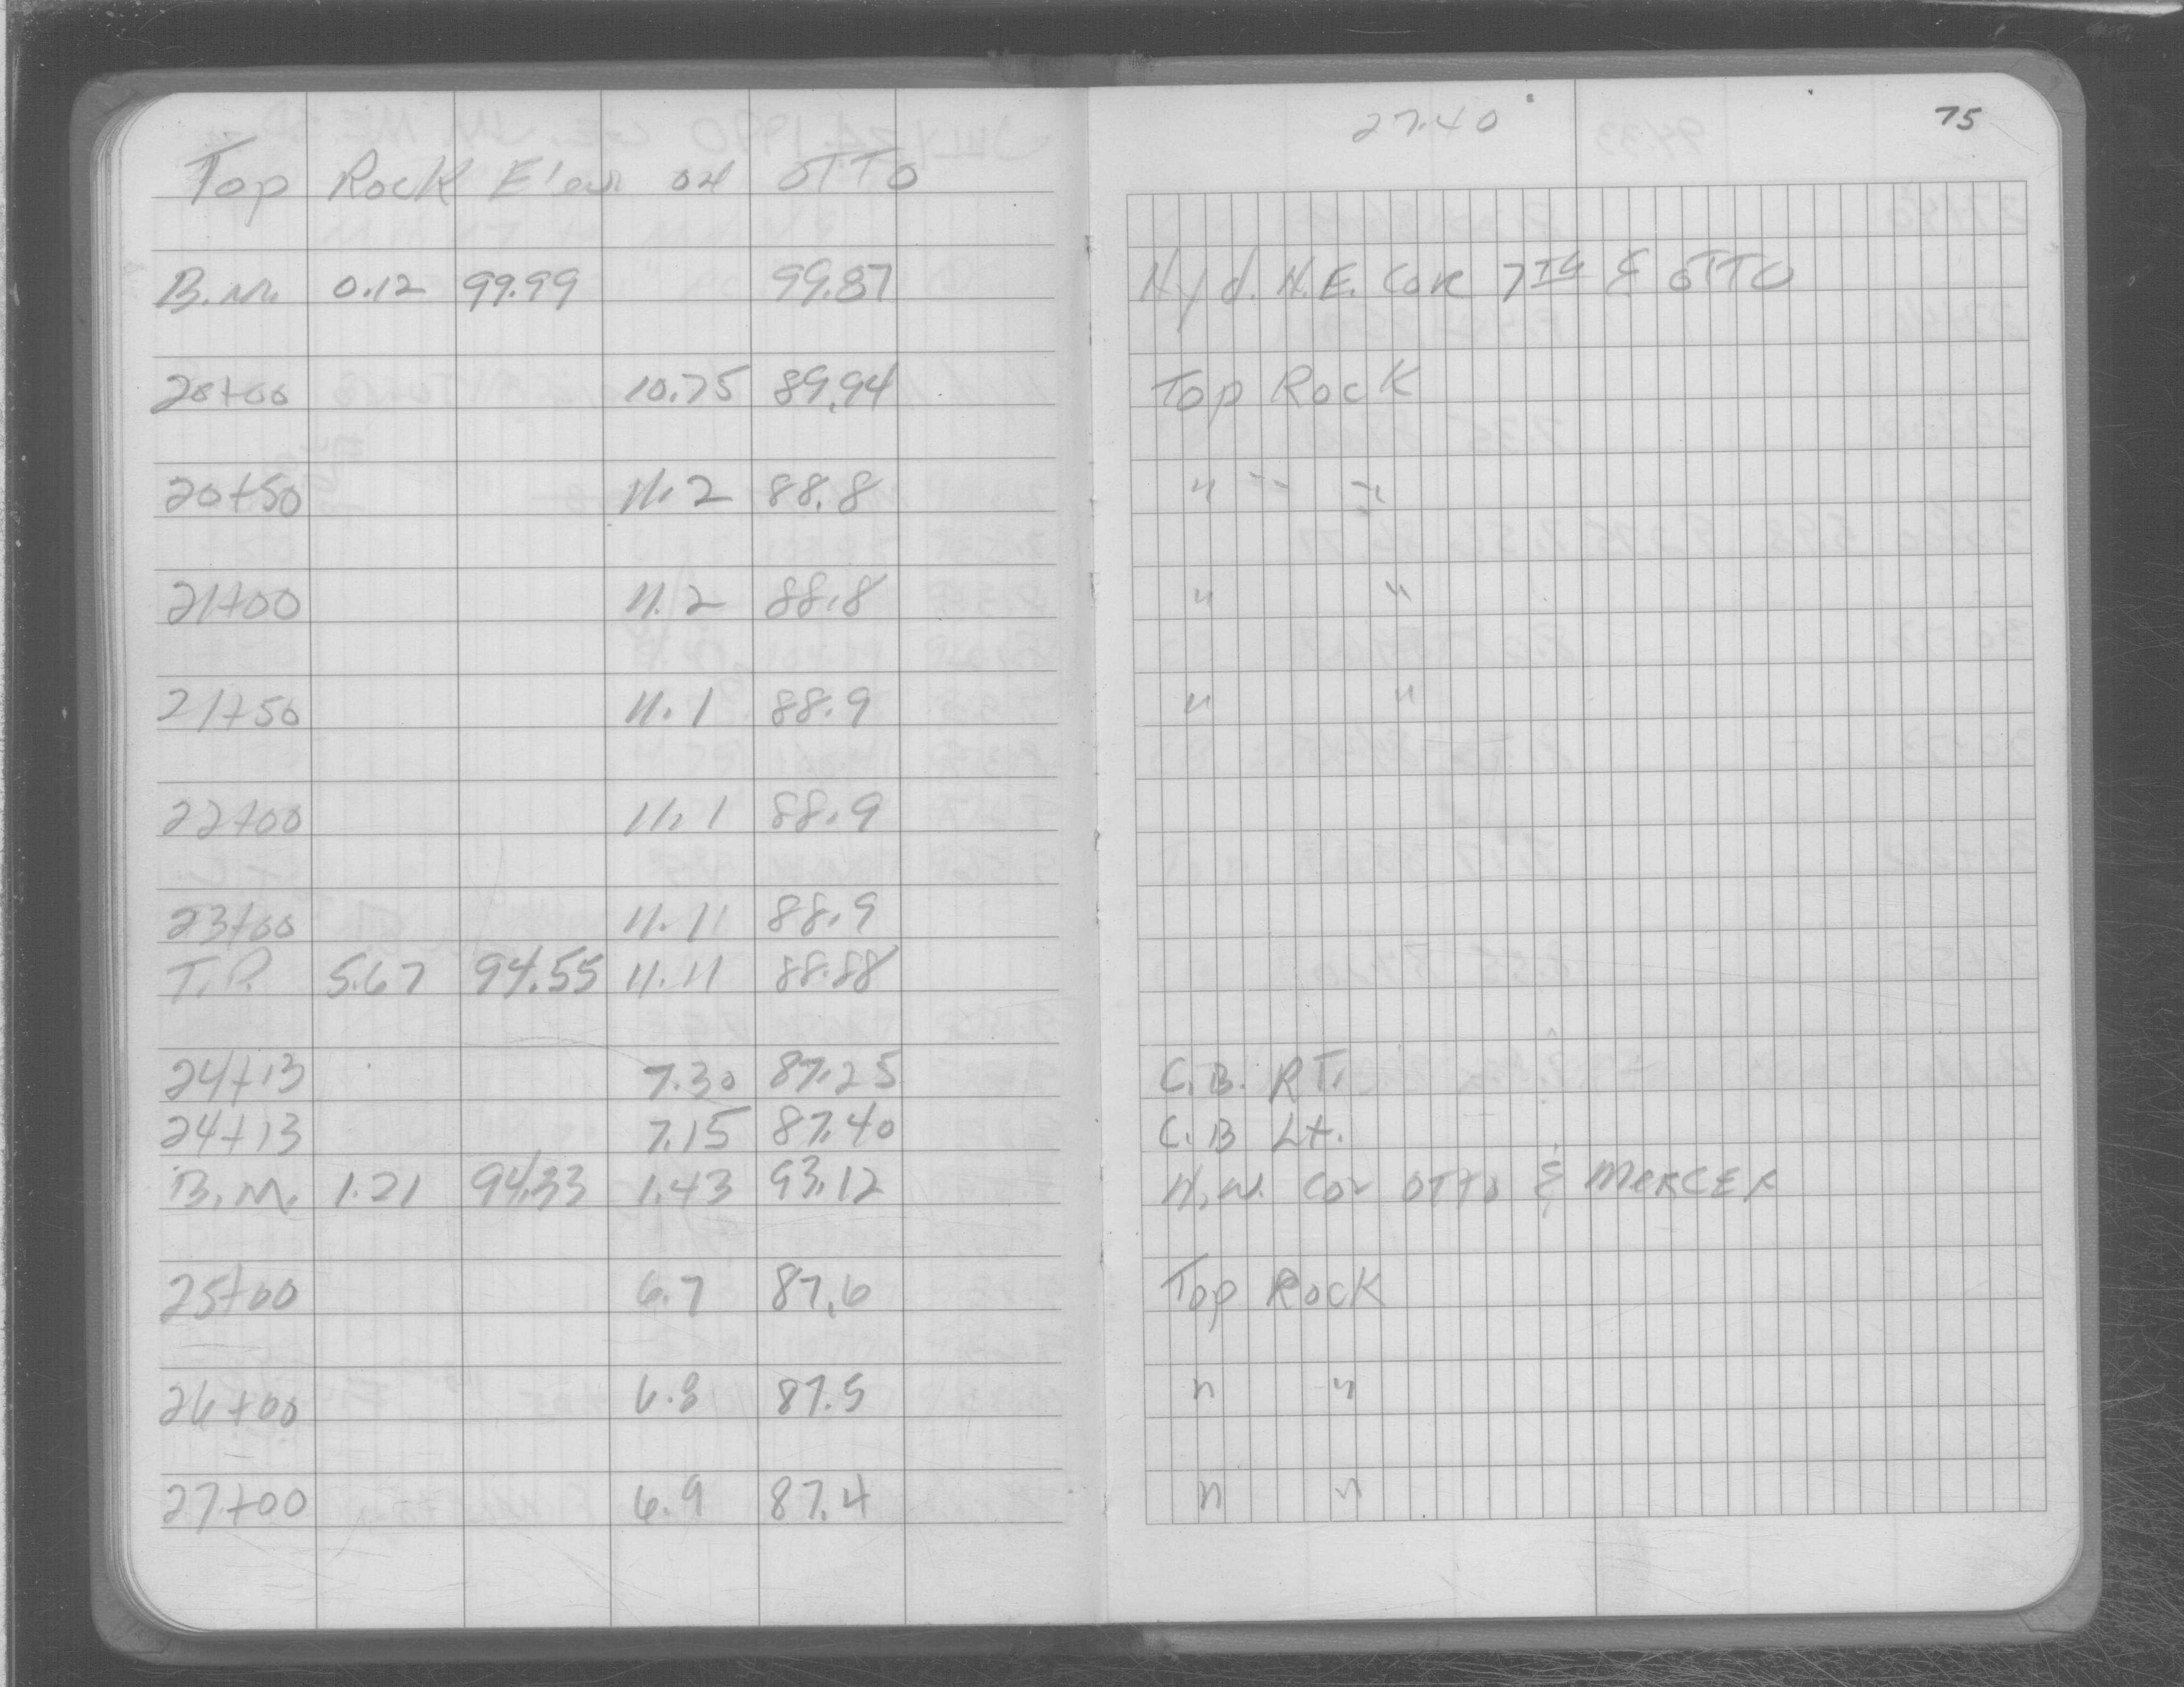 Top Rock Elev on OTTO
B.M. 0.12 99.99 99.87
20+00 10.75 89.94
20+50 11.2 88.8
21+00 11.2 88.8
21+50 11.1 88.9
22+00 11.1 88.9
23+00 11.11 88.9
T.P. 5.67 94.55 11.11 88.88
24+13 7.30 87.25
24+13 7.15 87.40
B.M. 1.21 94.33 1.43 93.12
25+00 6.7 87.6
26+00 6.8 87.5
27+00 6.9 87.4
27.40 75
Hyd. N.E. COR 7TH & OTTO
Top Rock
" " "
" "
" "
C.B. RT.
C.B Lt.
N.W. Cor OTTO & MERCER
Top Rock
" "
" "